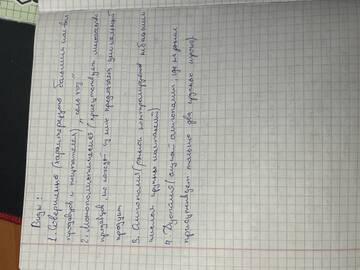 Виды:
1. Совершенно (характеризует большим кол-во
продавцов и покупателей) „сель.хоз"
2. Монополистическая (присутствует множество
продавцов, но каждый из них предлагает уникальный
продукт
3. Олигополия (рынок контролируется небольшим
числом крупных компаний)
4. Дуополия (случай олигополии, где на рынке
присутствует только два крупных игрока).